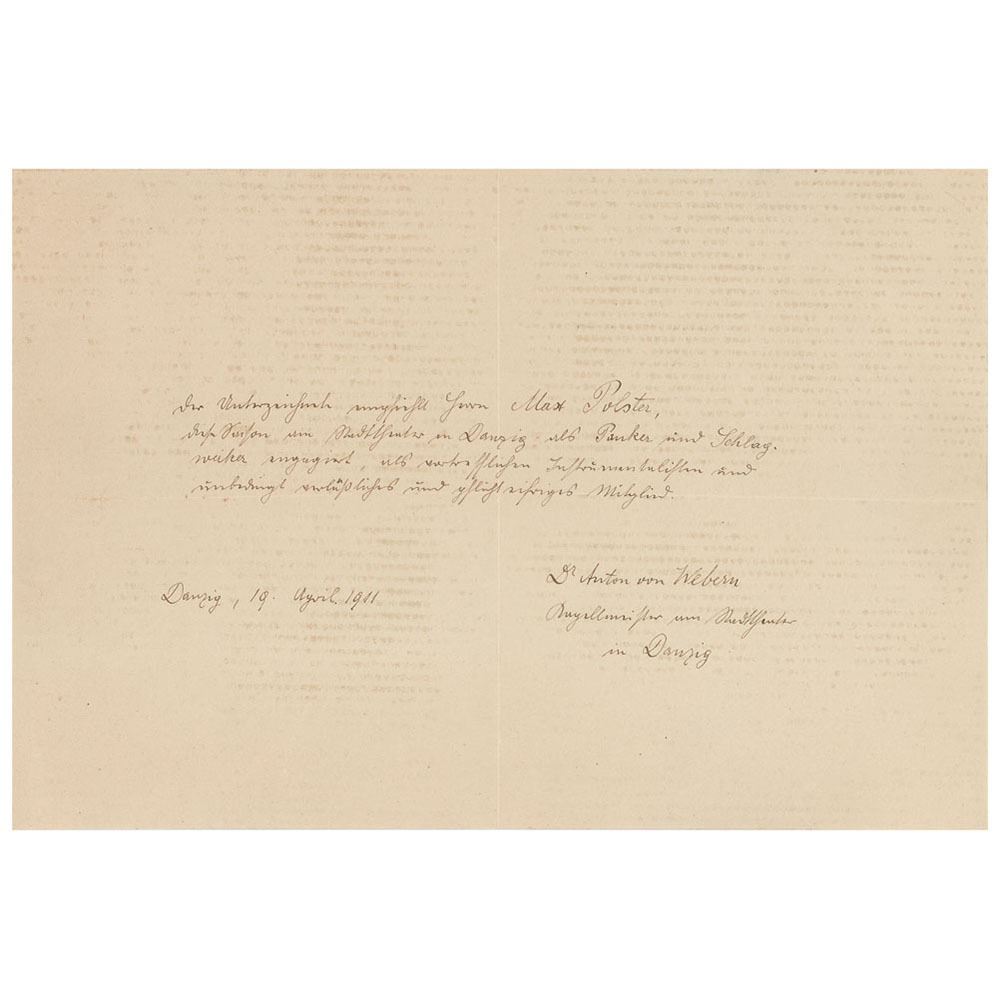 Der Unterzeichnete empfiehlt Herrn Max Polster,
diese Saison am Stadttheater in Danzig als Pauker und Schlag-
werker engagiert, als vortrefflichen Instrumentalisten und
unbedingt verläßliches und pflichteifriges Mitglied.
Danzig, 19. April 1911
Dr Anton von Webern
Kapellmeister am Stadttheater
in Danzig